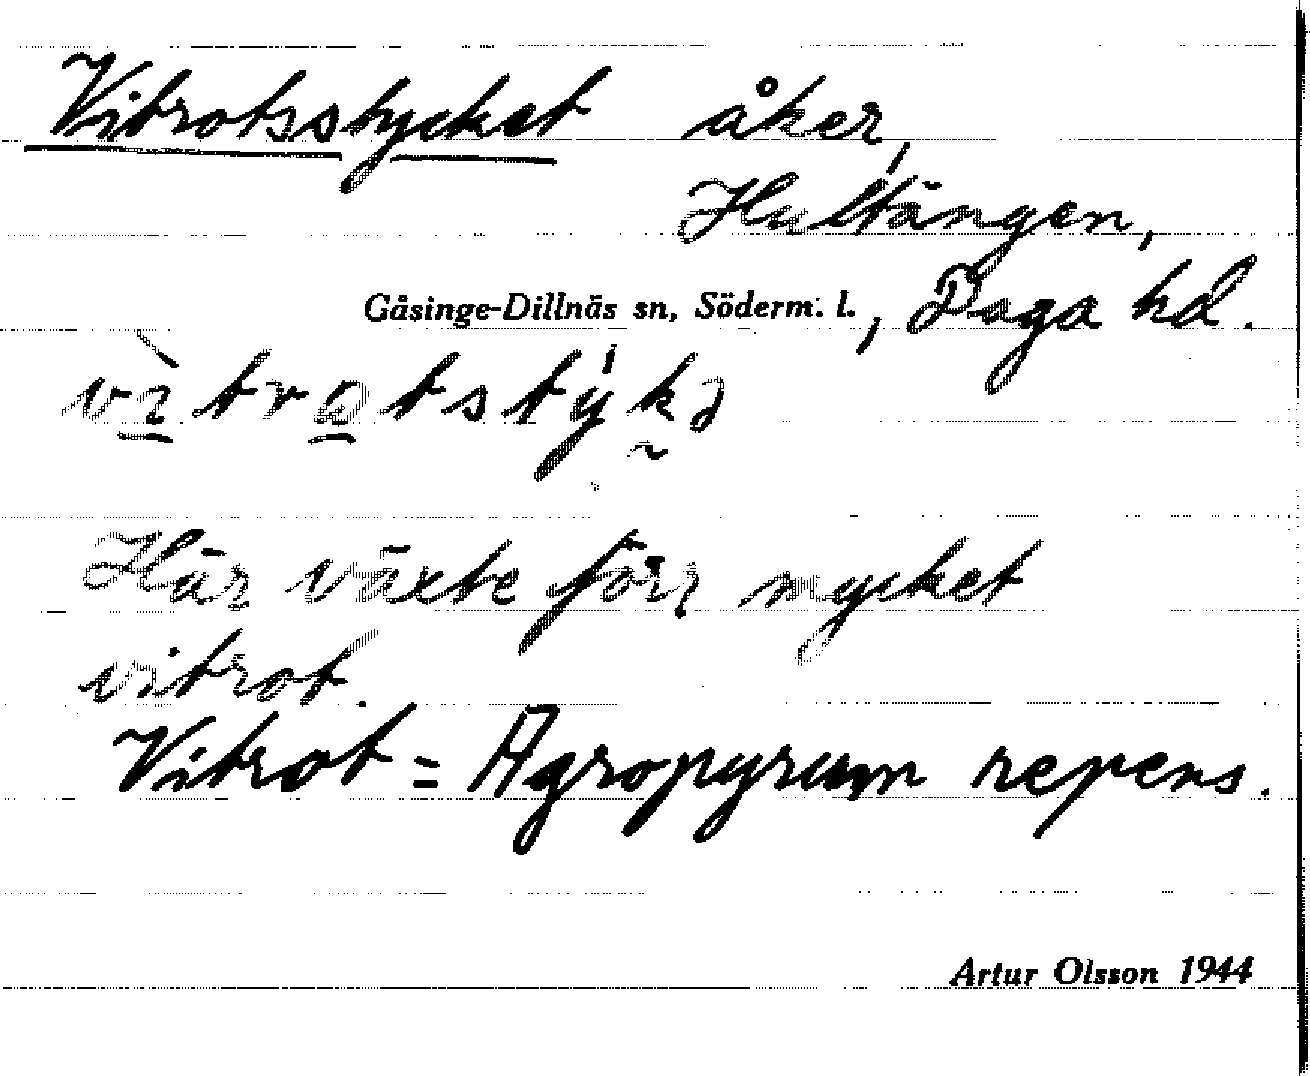 Vitrotsstycket åker,
Hultängen,
Gåsinge-Dillnäs sn, Söderm. l., Daga hd.
vìtrotstýkə
Här växte förr mycket
vitrot.
Vitrot = Agropyrum repens.
Artur Olsson 1944